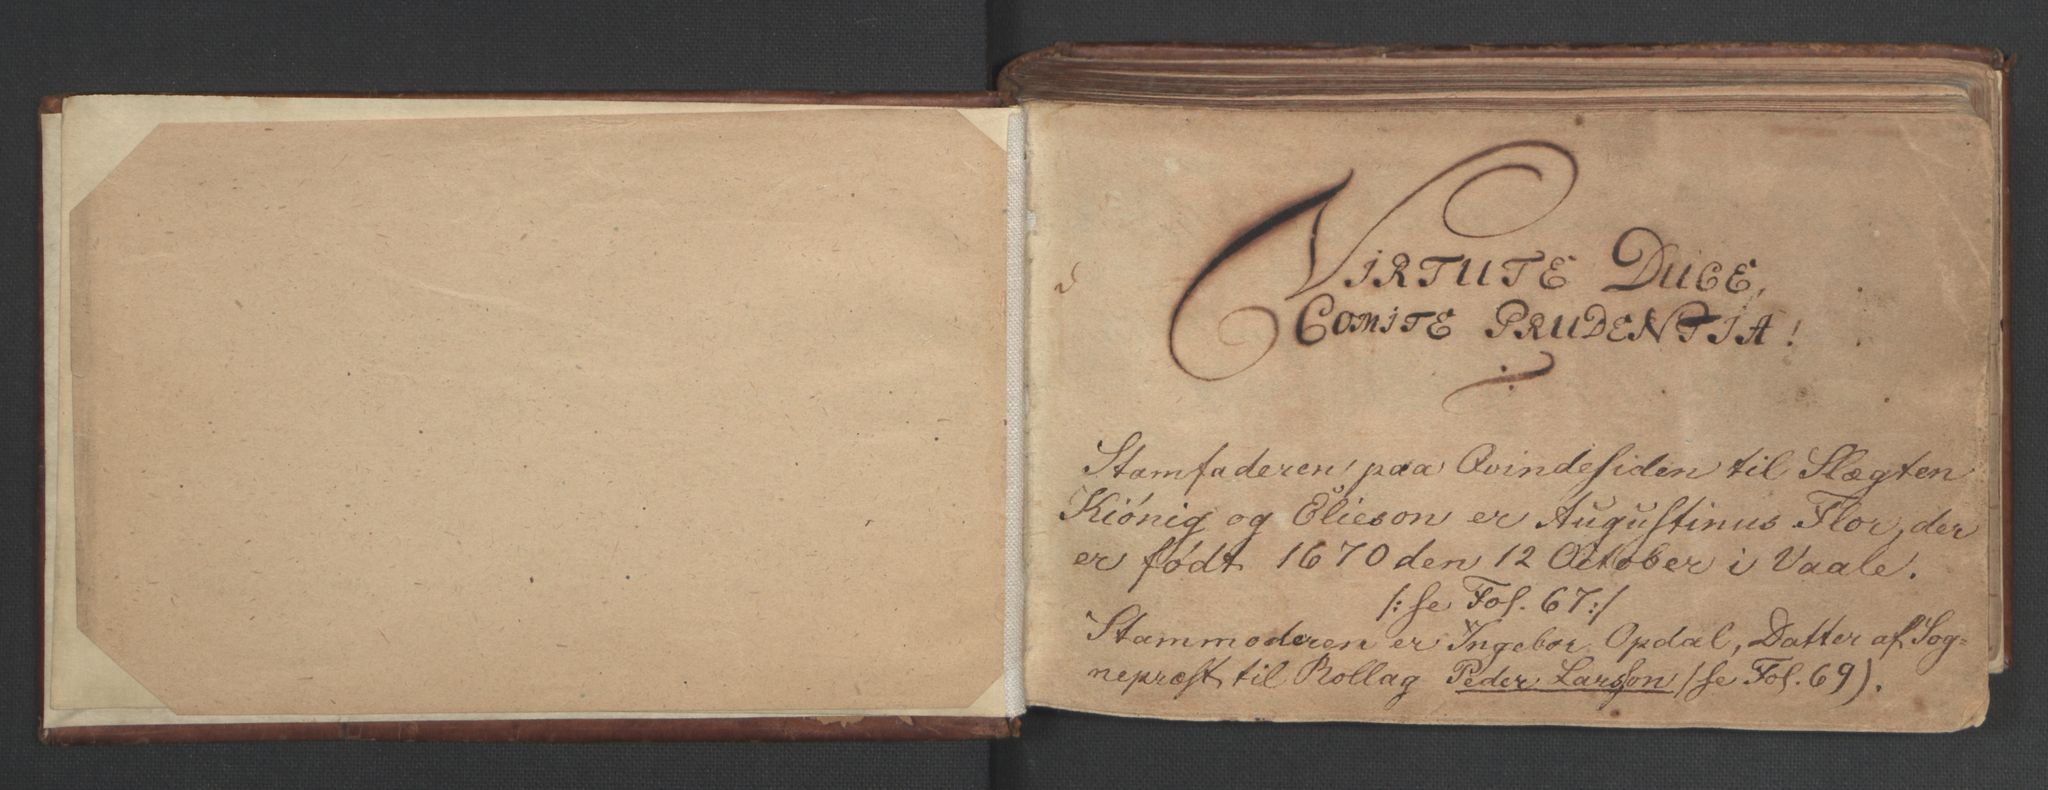 VIRTUTE DUCE,
COMITE PRUDENTIA!
Stamfaderen paa Qvindesiden til Slægten
Kiónig og Elieson er Augustinus Flor, der
er født 1670 den 12 October i Vaale.
/: se Fol. 67 :/
Stammoderen er Ingebor Opdal, Datter af Sog=
nepræst til Rollag Peder Larsson /se Fol. 69).